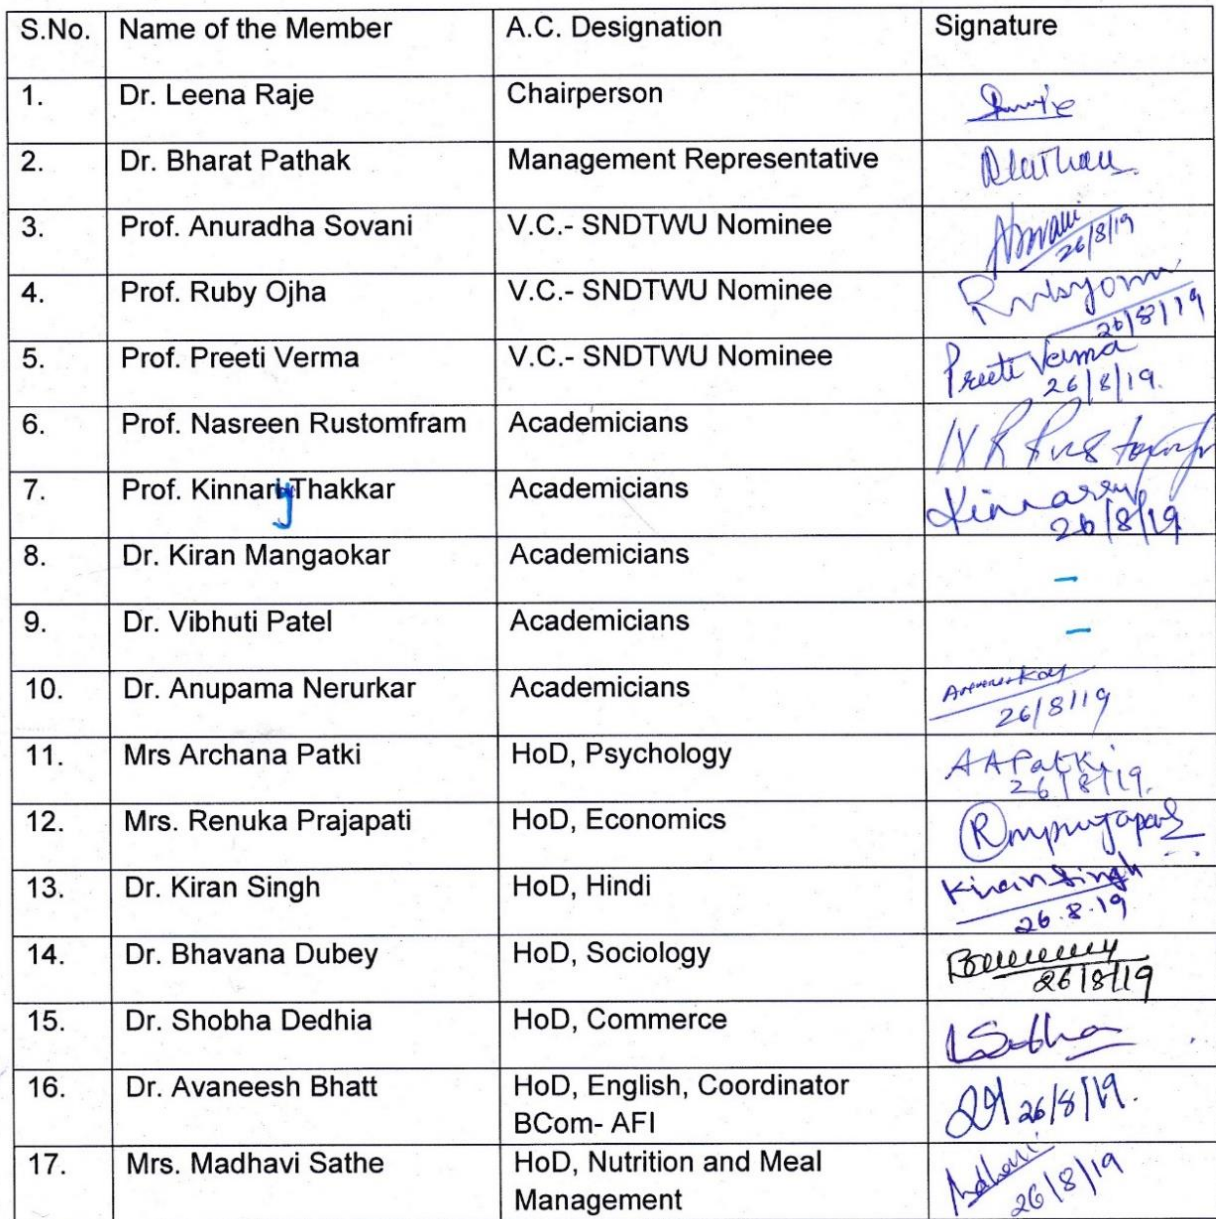 S.No. Name of the Member A.C. Designation Signature
1. Dr. Leena Raje Chairperson
2. Dr. Bharat Pathak Management Representative
3. Prof. Anuradha Sovani V.C.- SNDTWU Nominee
26/8/19
4. Prof. Ruby Ojha V.C.- SNDTWU Nominee
26/8/19
5. Prof. Preeti Verma V.C.- SNDTWU Nominee Preeti Verma
26/8/19.
6. Prof. Nasreen Rustomfram Academicians
7. Prof. Kinnary Thakkar Academicians
26/8/19
8. Dr. Kiran Mangaokar Academicians -
9. Dr. Vibhuti Patel Academicians -
10. Dr. Anupama Nerurkar Academicians
26/8/19
11. Mrs Archana Patki HoD, Psychology AAPatki
26/8/19.
12. Mrs. Renuka Prajapati HoD, Economics
13. Dr. Kiran Singh HoD, Hindi Kiran Singh
26.8.19
14. Dr. Bhavana Dubey HoD, Sociology
26/8/19
15. Dr. Shobha Dedhia HoD, Commerce
16. Dr. Avaneesh Bhatt HoD, English, Coordinator 26/8/19.
BCom- AFI
17. Mrs. Madhavi Sathe HoD, Nutrition and Meal Madhavi
Management 26/8/19